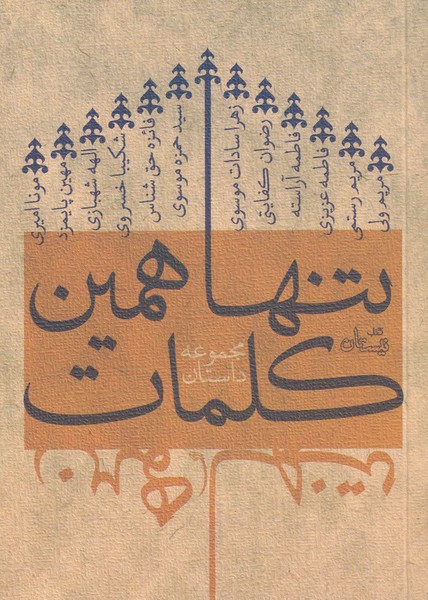 مریم ولی
مریم رستمی
فاطمه عزیزی
فاطمه آراسته
رضوان کفایتی
زهرا سادات موسوی
سید حمزه موسوی
فائزه حق شناس
شکیبا خسروی
الهه شهبازی
مهین پایمزد
مونا امیری
تنها همین
کلمات
مجموعه
داستان
نیستان